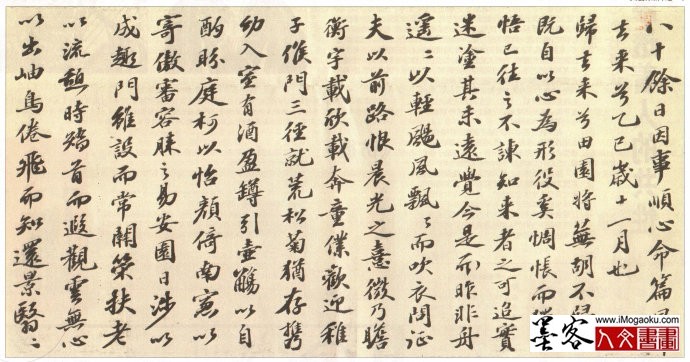 八十餘日因事順心命篇曰
去来兮乙巳歲十一月也
歸去来兮田園将蕪胡不歸
既自以心為形役奚惆悵而
悟已往之不諫知来者之可追實
迷塗其未遠覺今是而昨非舟
遥〻以輕颺風飄〻而吹衣問征
夫以前路恨晨光之熹微乃瞻
衡宇載欣載奔童僕歡迎稚
子候門三徑就荒松菊猶存携
幼入室有酒盈罇引壺觴以自
酌眄庭柯以怡顔倚南窓以
寄傲審容膝之易安園日涉以
成趣門雖設而常關策扶老
以流憩時矯首而遐觀雲無心
以出岫鳥倦飛而知還景翳〻
墨客
www.iMogaoku.com
人文書畫